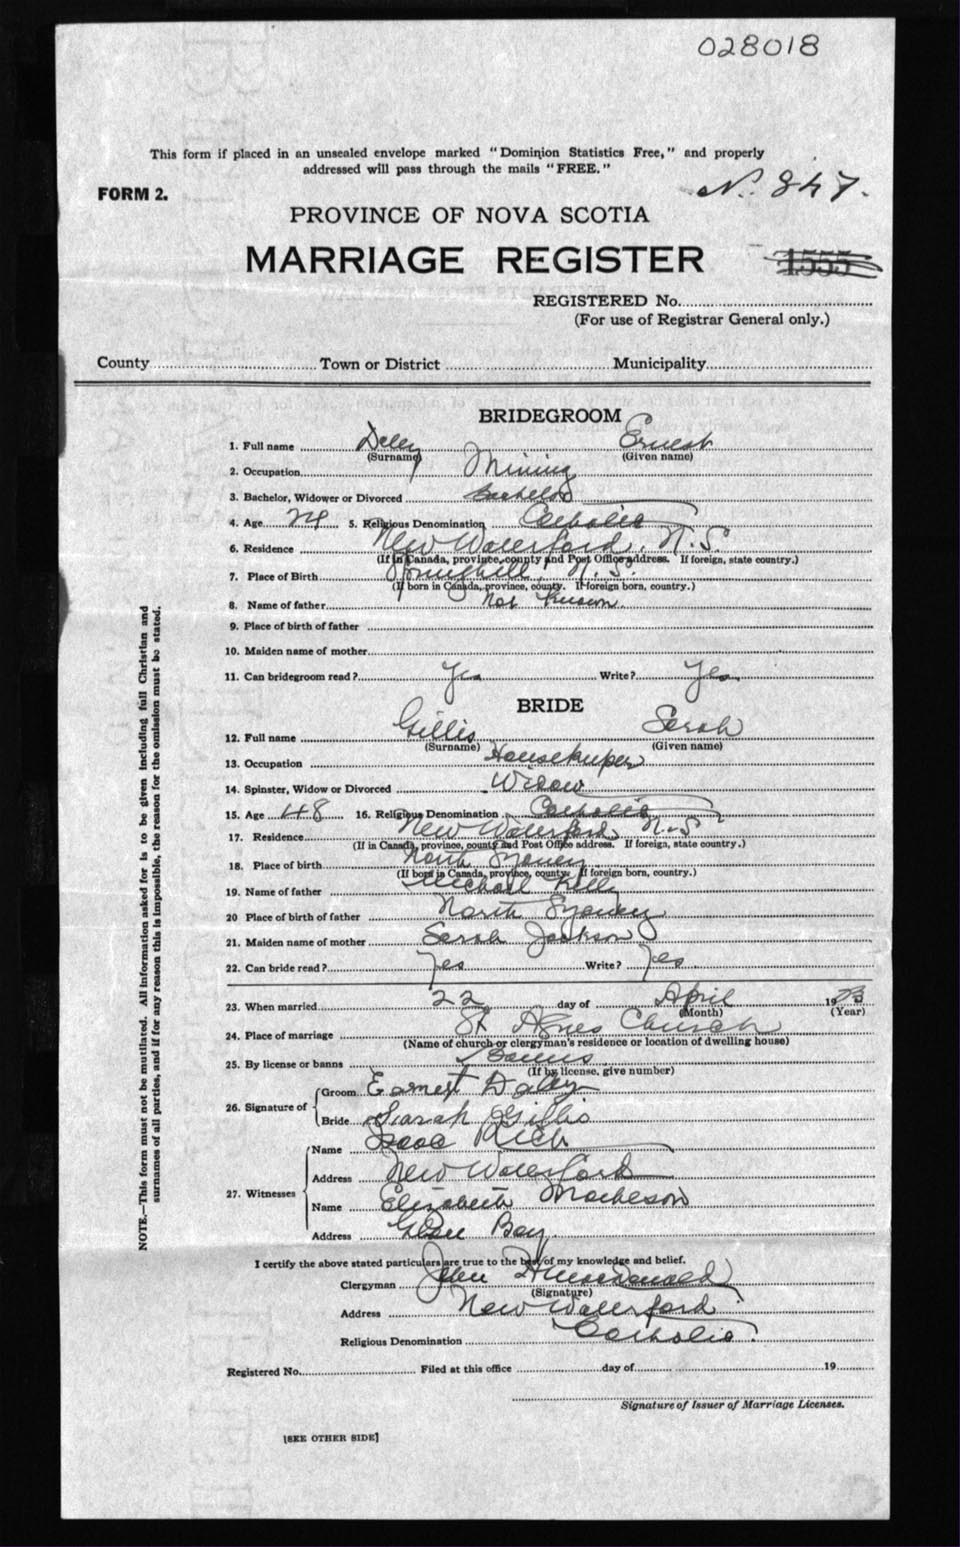 028018
This form if placed in an unsealed envelope marked "Dominion Statistics Free," and properly
addressed will pass through the mails "FREE."
FORM 2.
No. 847.
PROVINCE OF NOVA SCOTIA
MARRIAGE REGISTER
1555
REGISTERED No.
(For use of Registrar General only.)
County Town or District Municipality
BRIDEGROOM
1. Full name Daley Ernest
(Surname) (Given name)
2. Occupation Mining
3. Bachelor, Widower or Divorced Bachelor
4. Age 24 5. Religious Denomination Catholic
6. Residence New Waterford, N.S.
(If in Canada, province, county and Post Office address. If foreign, state country.)
7. Place of Birth Springhill, N.S.
(If born in Canada, province, county. If foreign born, country.)
8. Name of father Not Known.
9. Place of birth of father
10. Maiden name of mother
11. Can bridegroom read? Yes Write? Yes
BRIDE
12. Full name Gillis Sarah
(Surname) (Given name)
13. Occupation Housekeeper
14. Spinster, Widow or Divorced Widow
15. Age 48 16. Religious Denomination Catholic
17. Residence New Waterford, N.S
(If in Canada, province, county and Post Office address. If foreign, state country.)
18. Place of birth North Sydney
(If born in Canada, province, county. If foreign born, country.)
19. Name of father Michael Kelly
20 Place of birth of father North Sydney
21. Maiden name of mother Sarah Jackson
22. Can bride read? Yes Write? Yes
23. When married 22 day of April 19
(Month) (Year)
24. Place of marriage St Agnes Church
(Name of church or clergyman's residence or location of dwelling house)
25. By license or banns Banns
(If by license, give number)
26. Signature of Groom Earnest Daley
Bride Sarah Gillis
27. Witnesses Name Isaac Rich
Address New Waterford
Name Elizabeth Matheson
Address Glace Bay
I certify the above stated particulars are true to the best of my knowledge and belief.
Clergyman John H MacDonald
(Signature)
Address New Waterford
Religious Denomination Catholic
Registered No. Filed at this office day of 19
Signature of Issuer of Marriage Licenses.
[SEE OTHER SIDE]
NOTE.—This form must not be mutilated. All information asked for is to be given including full Christian and
surnames of all parties, and if for any reason this is impossible, the reason for the omission must be stated.